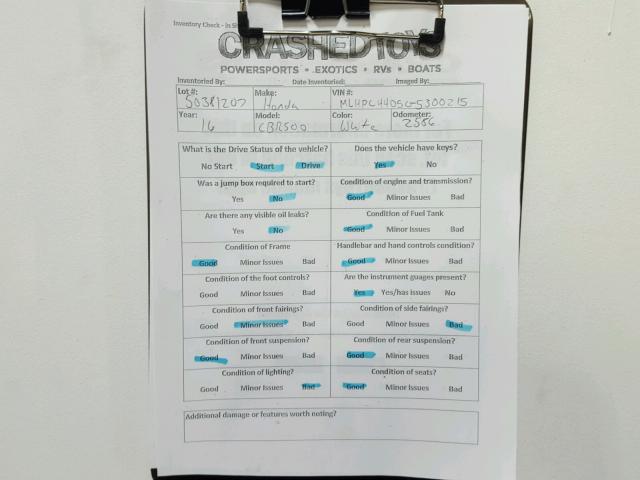 Inventory Check - In
CRASHEDTOYS
POWERSPORTS • EXOTICS • RVs • BOATS
Inventoried By: Date Inventoried: Imaged By:
Lot #: 50381207 Make: Honda VIN #: MLHPC4405G5300215
Year: 16 Model: CBR500 Color: White Odometer: 2556
What is the Drive Status of the vehicle? Does the vehicle have keys?
No Start Start Drive Yes No
Was a jump box required to start? Condition of engine and transmission?
Yes No Good Minor Issues Bad
Are there any visible oil leaks? Condition of Fuel Tank
Yes No Good Minor Issues Bad
Condition of Frame Handlebar and hand controls condition?
Good Minor Issues Bad Good Minor Issues Bad
Condition of the foot controls? Are the instrument guages present?
Good Minor Issues Bad Yes Yes/has issues No
Condition of front fairings? Condition of side fairings?
Good Minor Issues Bad Good Minor Issues Bad
Condition of front suspension? Condition of rear suspension?
Good Minor Issues Bad Good Minor Issues Bad
Condition of lighting? Condition of seats?
Good Minor Issues Bad Good Minor Issues Bad
Additional damage or features worth noting?